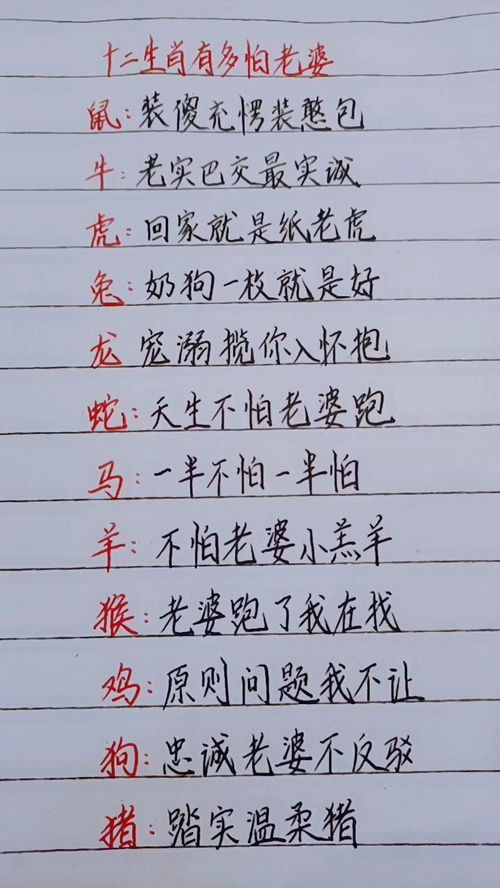 十二生肖有多怕老婆
鼠:装傻充愣装憨包
牛:老实巴交最实诚
虎:回家就是纸老虎
兔:奶狗一枚就是好
龙 宠溺揽你入怀抱
蛇:天生不怕老婆跑
马:一半不怕一半怕
羊:不怕老婆小羔羊
猴:老婆跑了我在找
鸡:原则问题我不让
狗:忠诚老婆不反驳
猪:踏实温柔猪